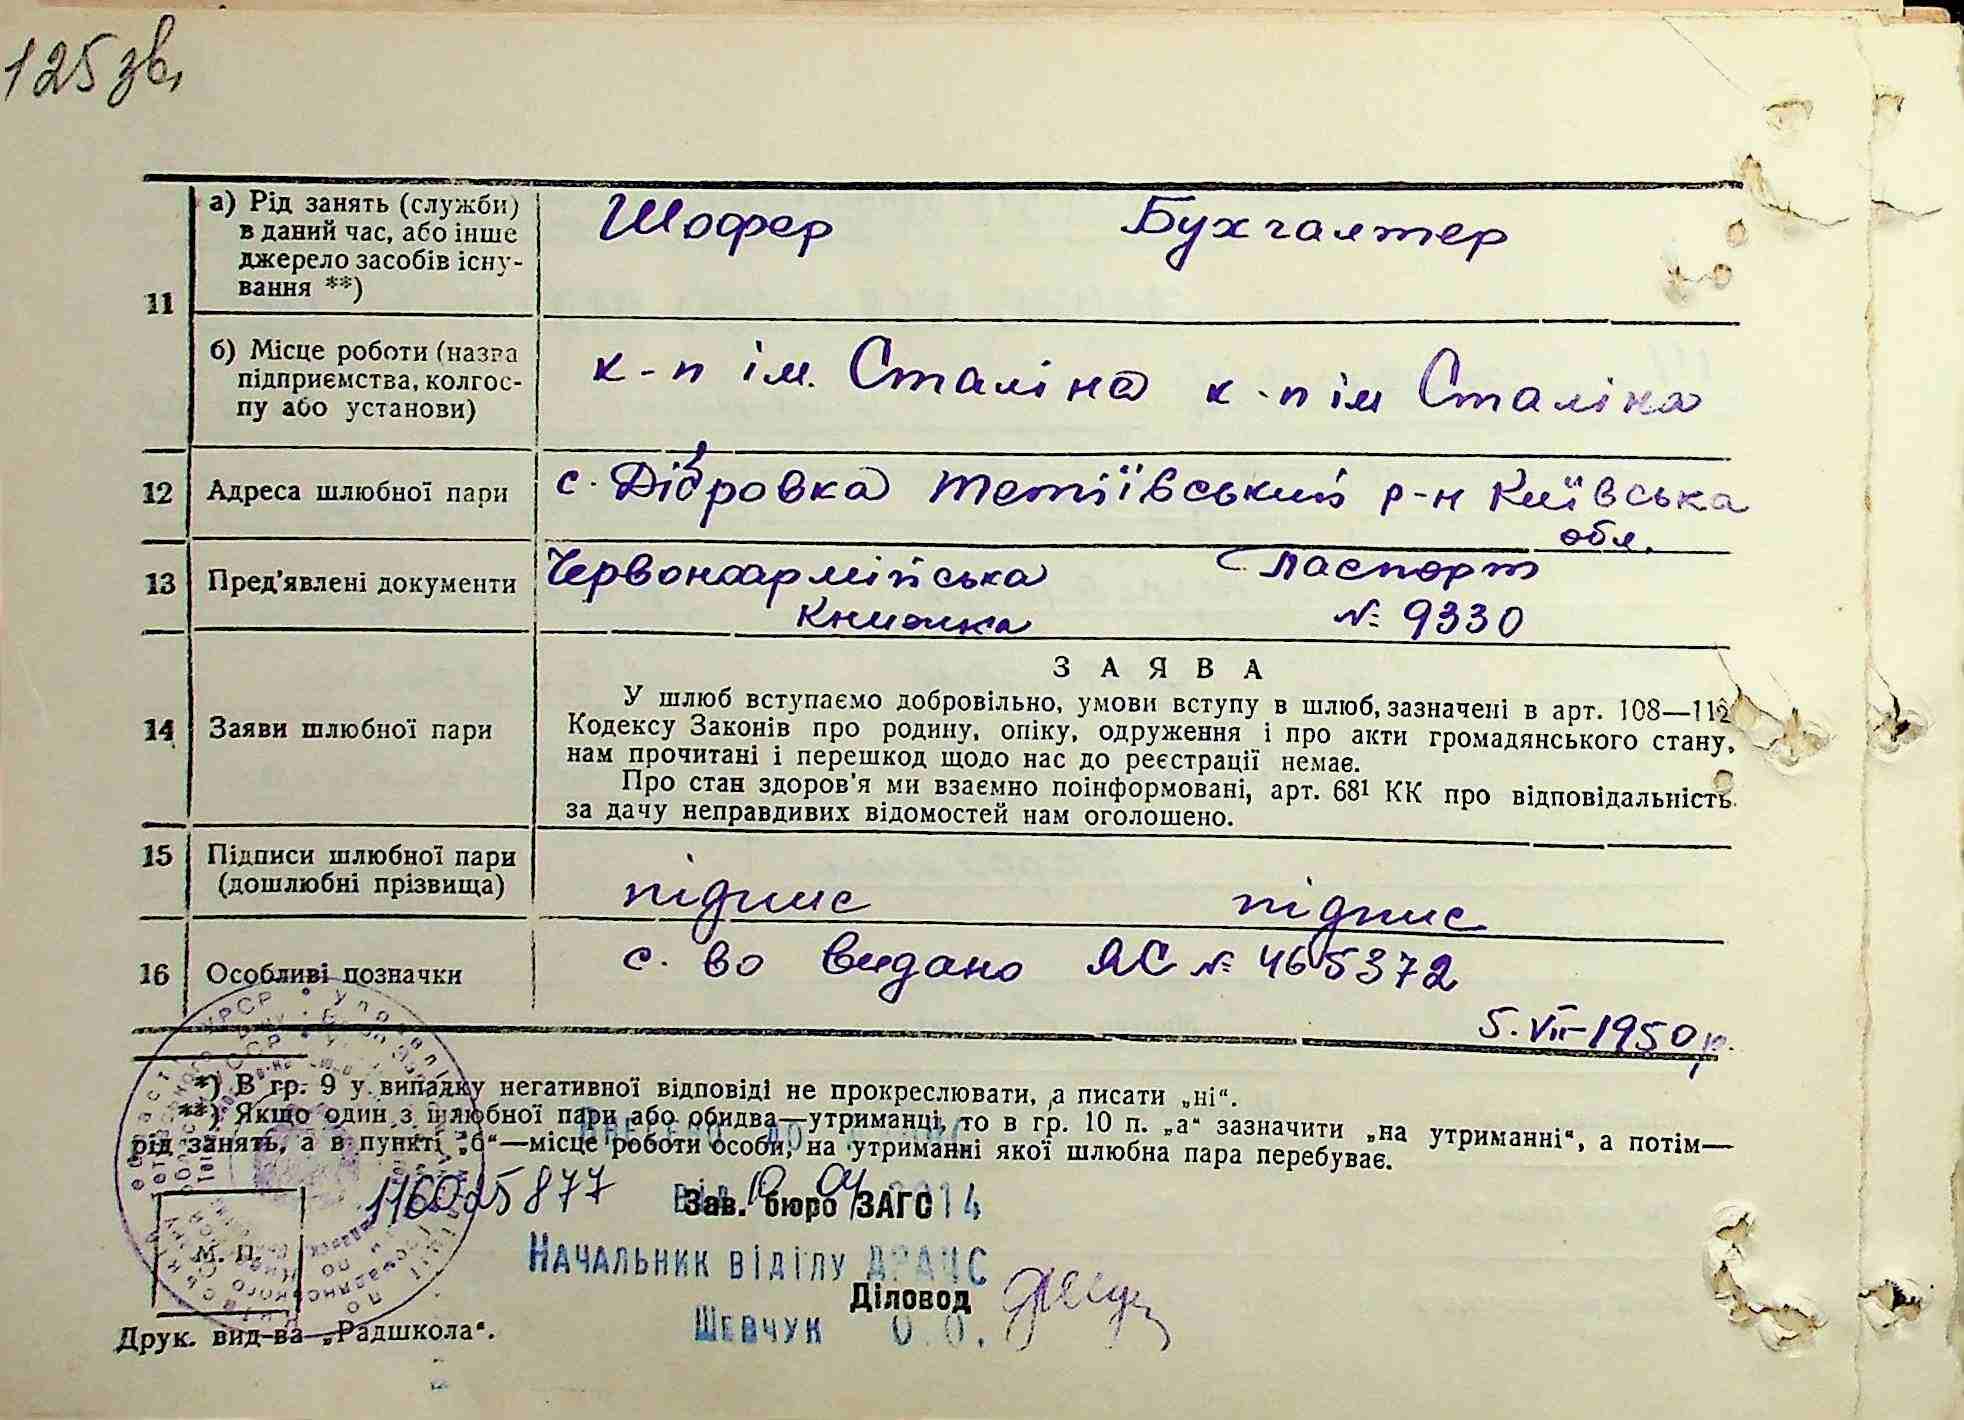 125 зв.
а) Рід занять (служби)
в даний час, або інше
джерело засобів існу-
вання **)
Шофер Бухгалтер
11
б) Місце роботи (назва
підприємства, колгос-
пу або установи)
к-п ім. Сталіна к-п ім Сталіна
12 Адреса шлюбної пари с. Дібровка Тетіївський р-н Київська
обл.
13 Пред'явлені документи Червоноармійська Паспорт
книжка № 9330
14 Заяви шлюбної пари
ЗАЯВА
У шлюб вступаємо добровільно, умови вступу в шлюб, зазначені в арт. 108—112
Кодексу Законів про родину, опіку, одруження і про акти громадянського стану,
нам прочитані і перешкод щодо нас до реєстрації немає.
Про стан здоров'я ми взаємно поінформовані, арт. 68¹ КК про відповідальність
за дачу неправдивих відомостей нам оголошено.
15 Підписи шлюбної пари
(дошлюбні прізвища)
підпис підпис
16 Особливі позначки с. во видано ЯС № 465372
5.VII-1950р.
*) В гр. 9 у випадку негативної відповіді не прокреслювати, а писати „ні“.
**) Якщо один з шлюбної пари або обидва—утриманці, то в гр. 10 п. „а“ зазначити „на утриманні“, а потім—
рід занять, а в пункті „б“—місце роботи особи, на утриманні якої шлюбна пара перебуває.
Зав. бюро ЗАГС
М. П.
Начальник відділу ДРАЦС
Діловод
Шевчук О.О.
Друк. вид-ва „Радшкола“.